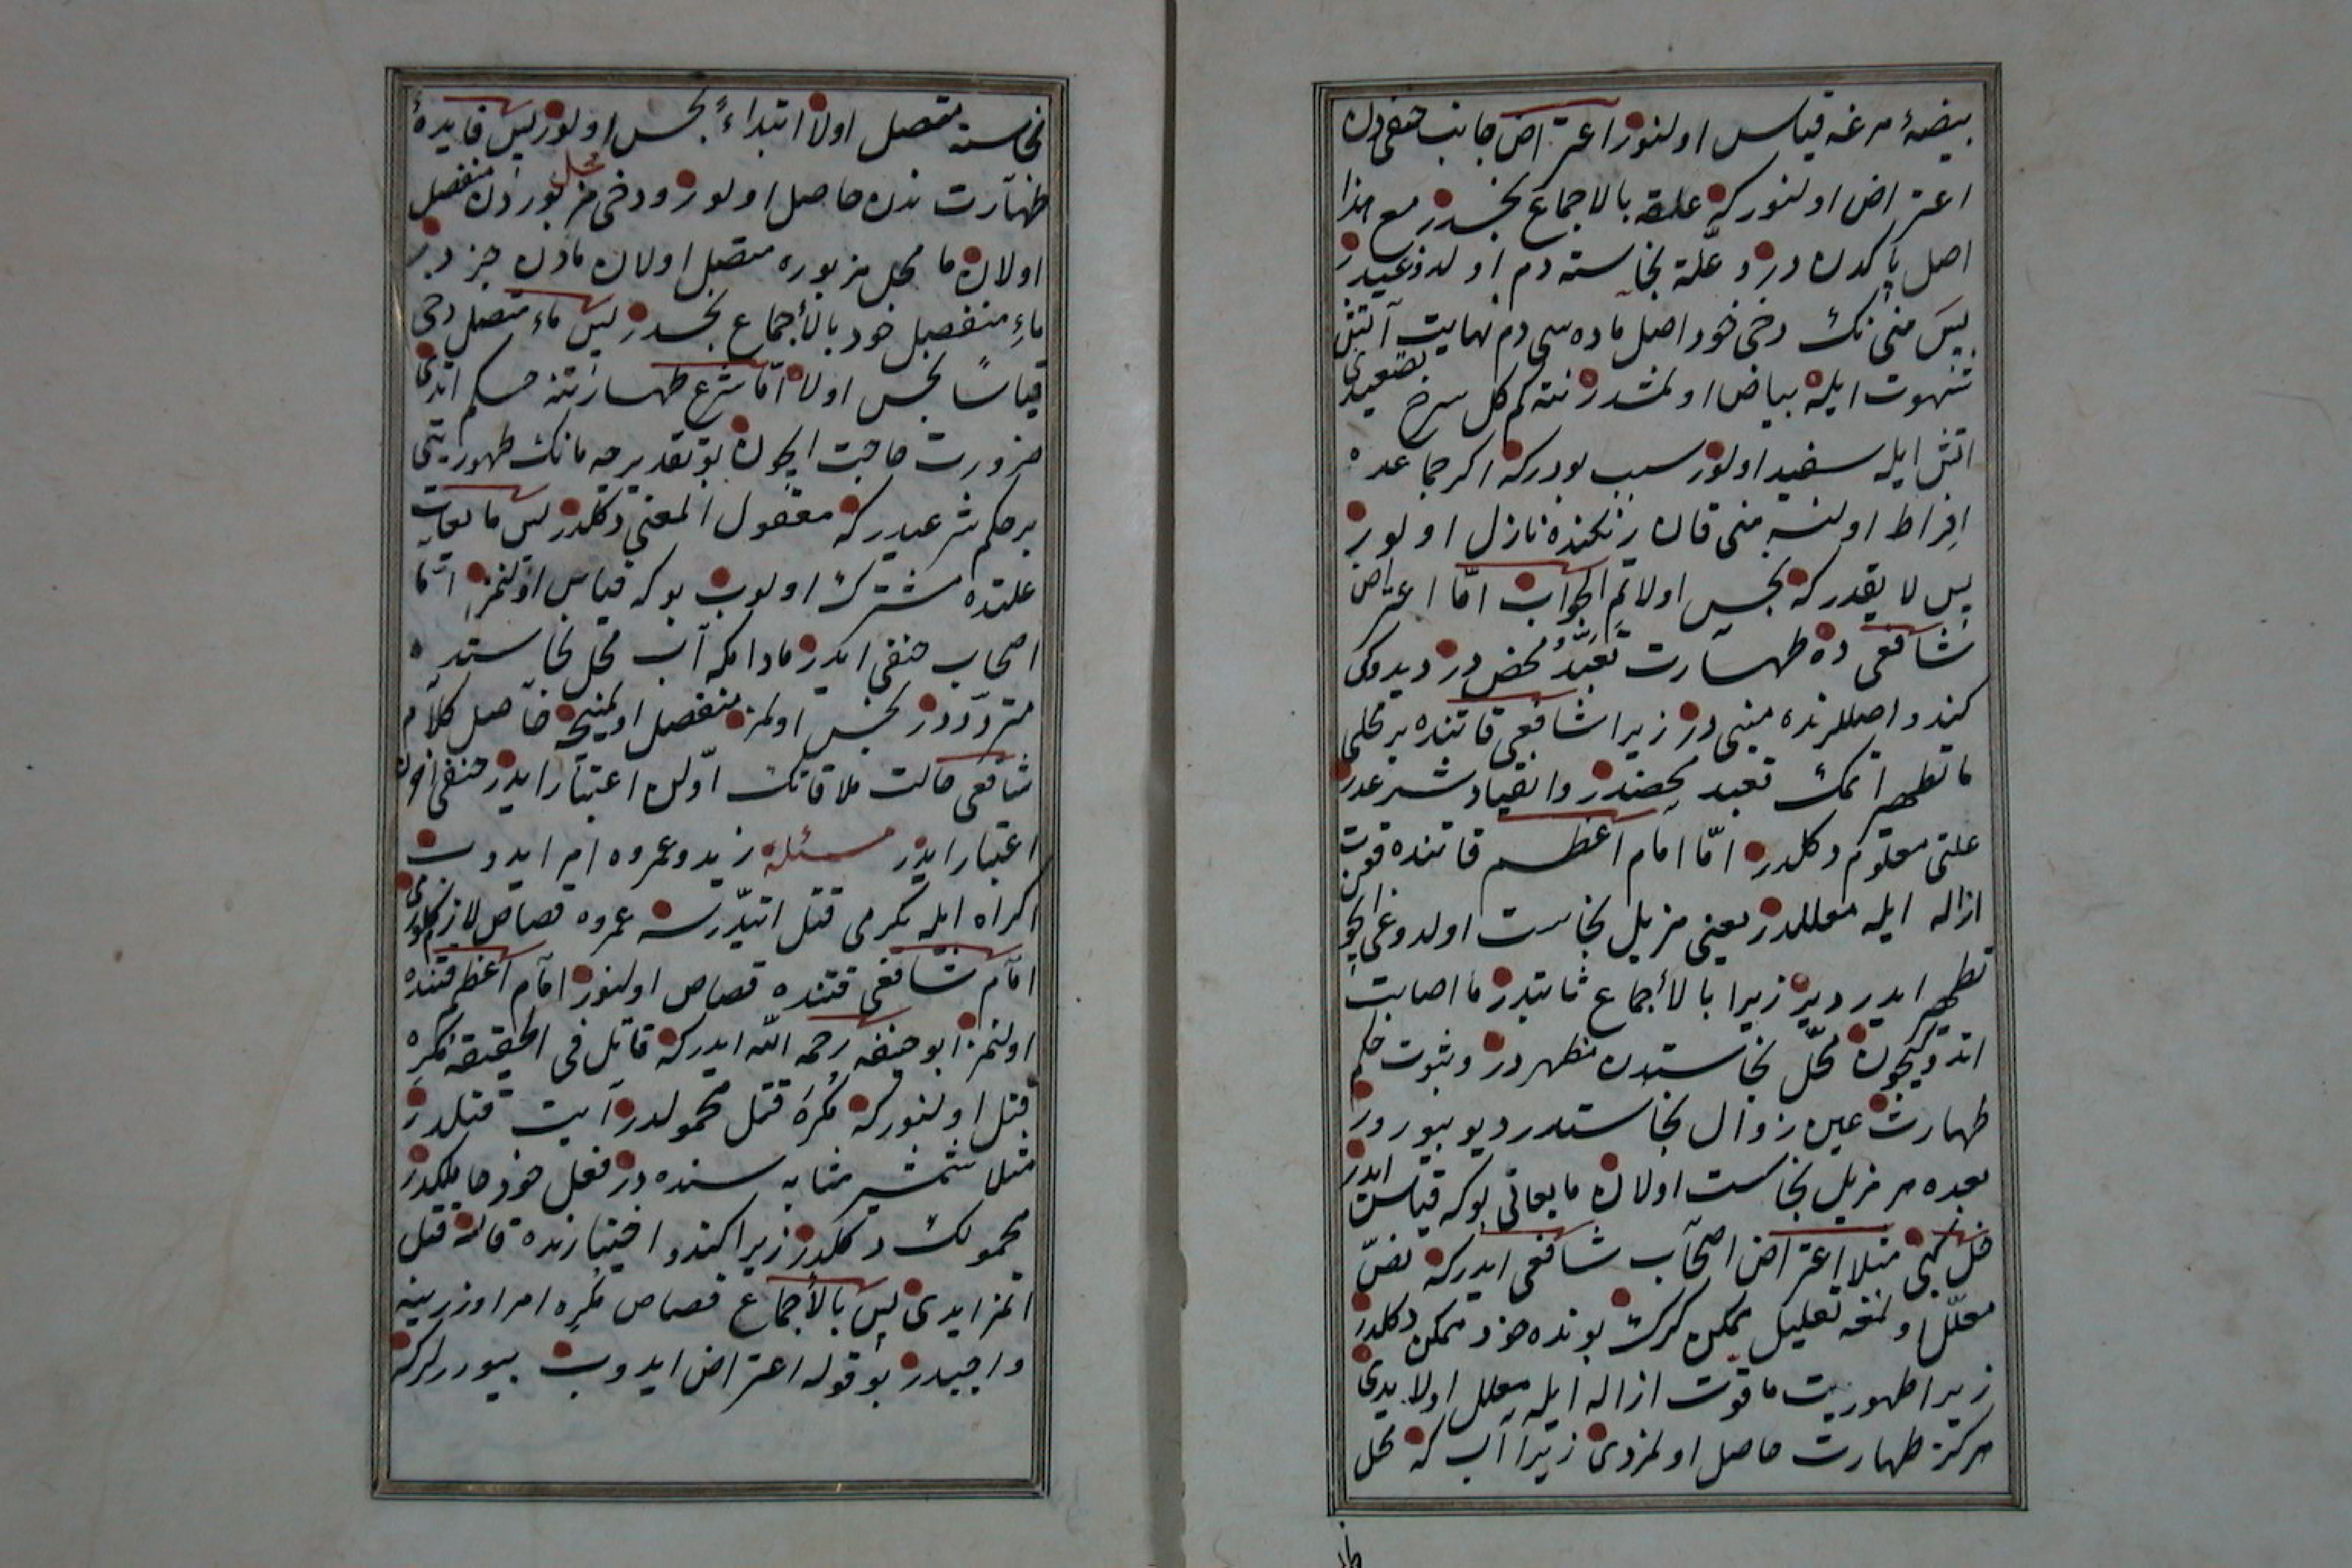 بیضۀ مرغه قیاس اولنور اعتراض جانب حنفی دن
اعتراض اولنور که علقه بالاجماع نجسدر مع هذا
اصل پاکدن در و علّة نجاسته دم اولدوغیدر
پس منی نک دخی خود اصل ماده سی دم نهایت آتش
شهوت ایله بیاض اولمشدر نته کم کل سرخ تصعیدی
اتش ایله سفید اولور سبب بودر که اکر جماعده
افراط اولنسه منی قان رنکنده نازل اولور
پس لا یقدر که نجس اولا تم الجواب امّا اعتراض
شافعی ده طهارت تعبّد محض در دیدوکی
کندو اصللرنده مبنی در زیرا شافعی قاتنده بر محلی
ما تطهیر اتمک تعبد محضدر و انقیاد شرعدر
علتی معلوم دکلدر امّا امام اعظم قاتنده قوت
ازاله ایله معللدر یعنی مزیل نجاست اولدوغی ایچون
تطهیر ایدر دیر زیرا بالاجماع ثابتدر ما اصابت
اتدوکیچون محلّ نجاستدن مطهر در و ثبوت حکم
طهارت عین زوال نجاستدر دیو بیورور
بعده هر مزیل نجاست اولان مایعاتی بوکه قیاس ایدر
خل کبی مثلا اعتراض اصحاب شافعی ایدر که نصّ
معلّل اولمغه تعلیل ممکن کرک بونده خود ممکن دکلدر
زیرا طهوریت ما قوت ازاله ایله معلل اولایدی
هرکز طهارت حاصل اولمزدی زیرا آب که محل
نجاسته متصل اولا ابتداءً نجس اولور پس فایدۀ
طهارت ندن حاصل اولور و دخی محل مزبوردن منفصل
اولان ما محل مزبوره متصل اولان مادن جزدر
ماءِ منفصل خود بالأجماع نجسدر پس ماء متصل دخی
قیاسًا نجس اولا امّا شرع طهارتنه حکم اتدی
ضرورت حاجت ایچون بو تقدیرجه مانک طهوریتی
بر حکم شرعیدر که معقول المعنی دکلدر پس مایعات
علتده مشترک اولوب بوکه قیاس اولنمز امّا
اصحاب حنفی ایدر مادامکه آب محل نجاستده
متردّددر نجس اولمز منفصل اولمینجه حاصل کلام
شافعی حالت ملاقاتک اوّلن اعتبار ایدر حنفی آخرن
اعتبار ایدر مسئله زید و عمروه امر ایدوب
اکراه ایله بکرمی قتل اتدّرسه عمروه قصاص لازم کلورمی
امام شافعی قتنده قصاص اولنور امام اعظم قتنده
اولنمز ابو حنیفه رحمه الله ایدر که قاتل فی الحقیقه مکرِه
قتل اولنور که مُکرَه قتل محمولدر آیت قتلدر
مثلا شمشیر مثابه سنده در فعل خود حاملکدر
محمولک دکلدر زیرا کندو اختیارنده قالسه قتل
اتمز ایدی پس بالأجماع قصاص مُکرِه امر اوزرینه
واجبدر بو قوله اعتراض ایدوب بیوررلر که